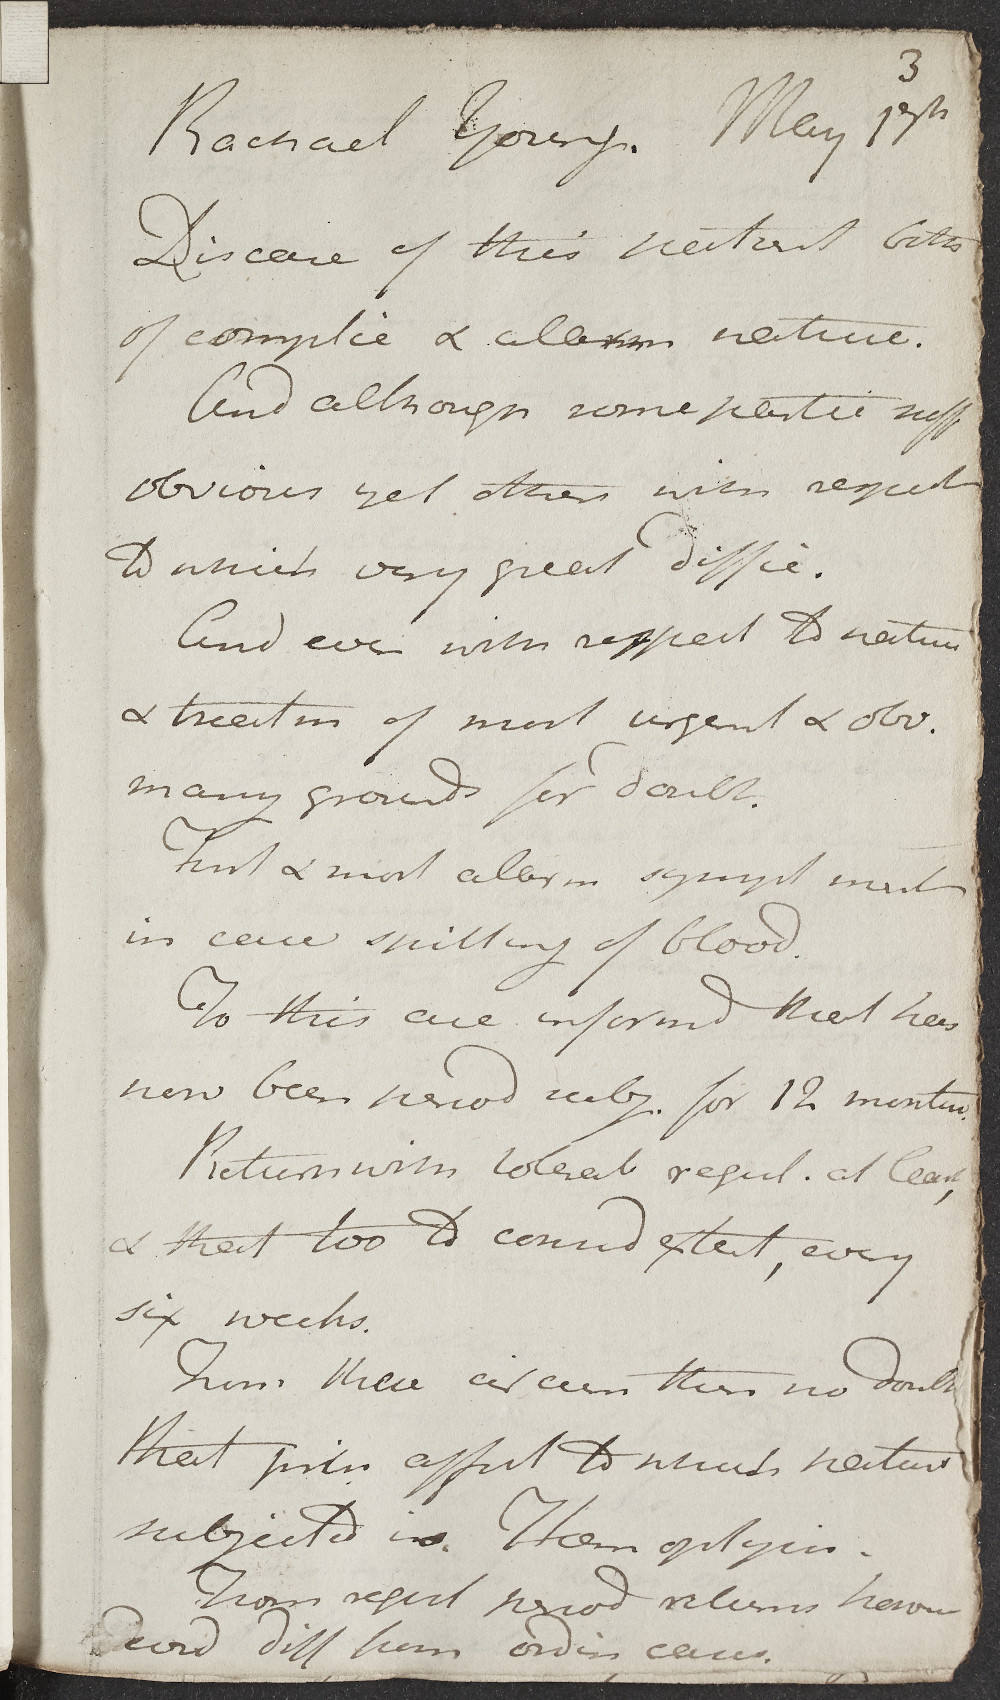 3
Rachael Young. May 17th
Disease of this patient both
of complic & alarm nature.
And although some partic suff
obvious yet others with respect
to which very great diffic.
And even with respect to nature
& treatm of most urgent & obv.
many grounds for doubt.
First & most alarm sympt mark
in case spitting of blood.
To this are informd that has
now been period subj. for 12 months.
Return with tolerab regul. at least,
& that too to consid extent, every
six weeks.
From these circum then no doubt
that prin affect to which patient
subjected is Hemoptysis.
From regul period returns however
diff from ordin cases.